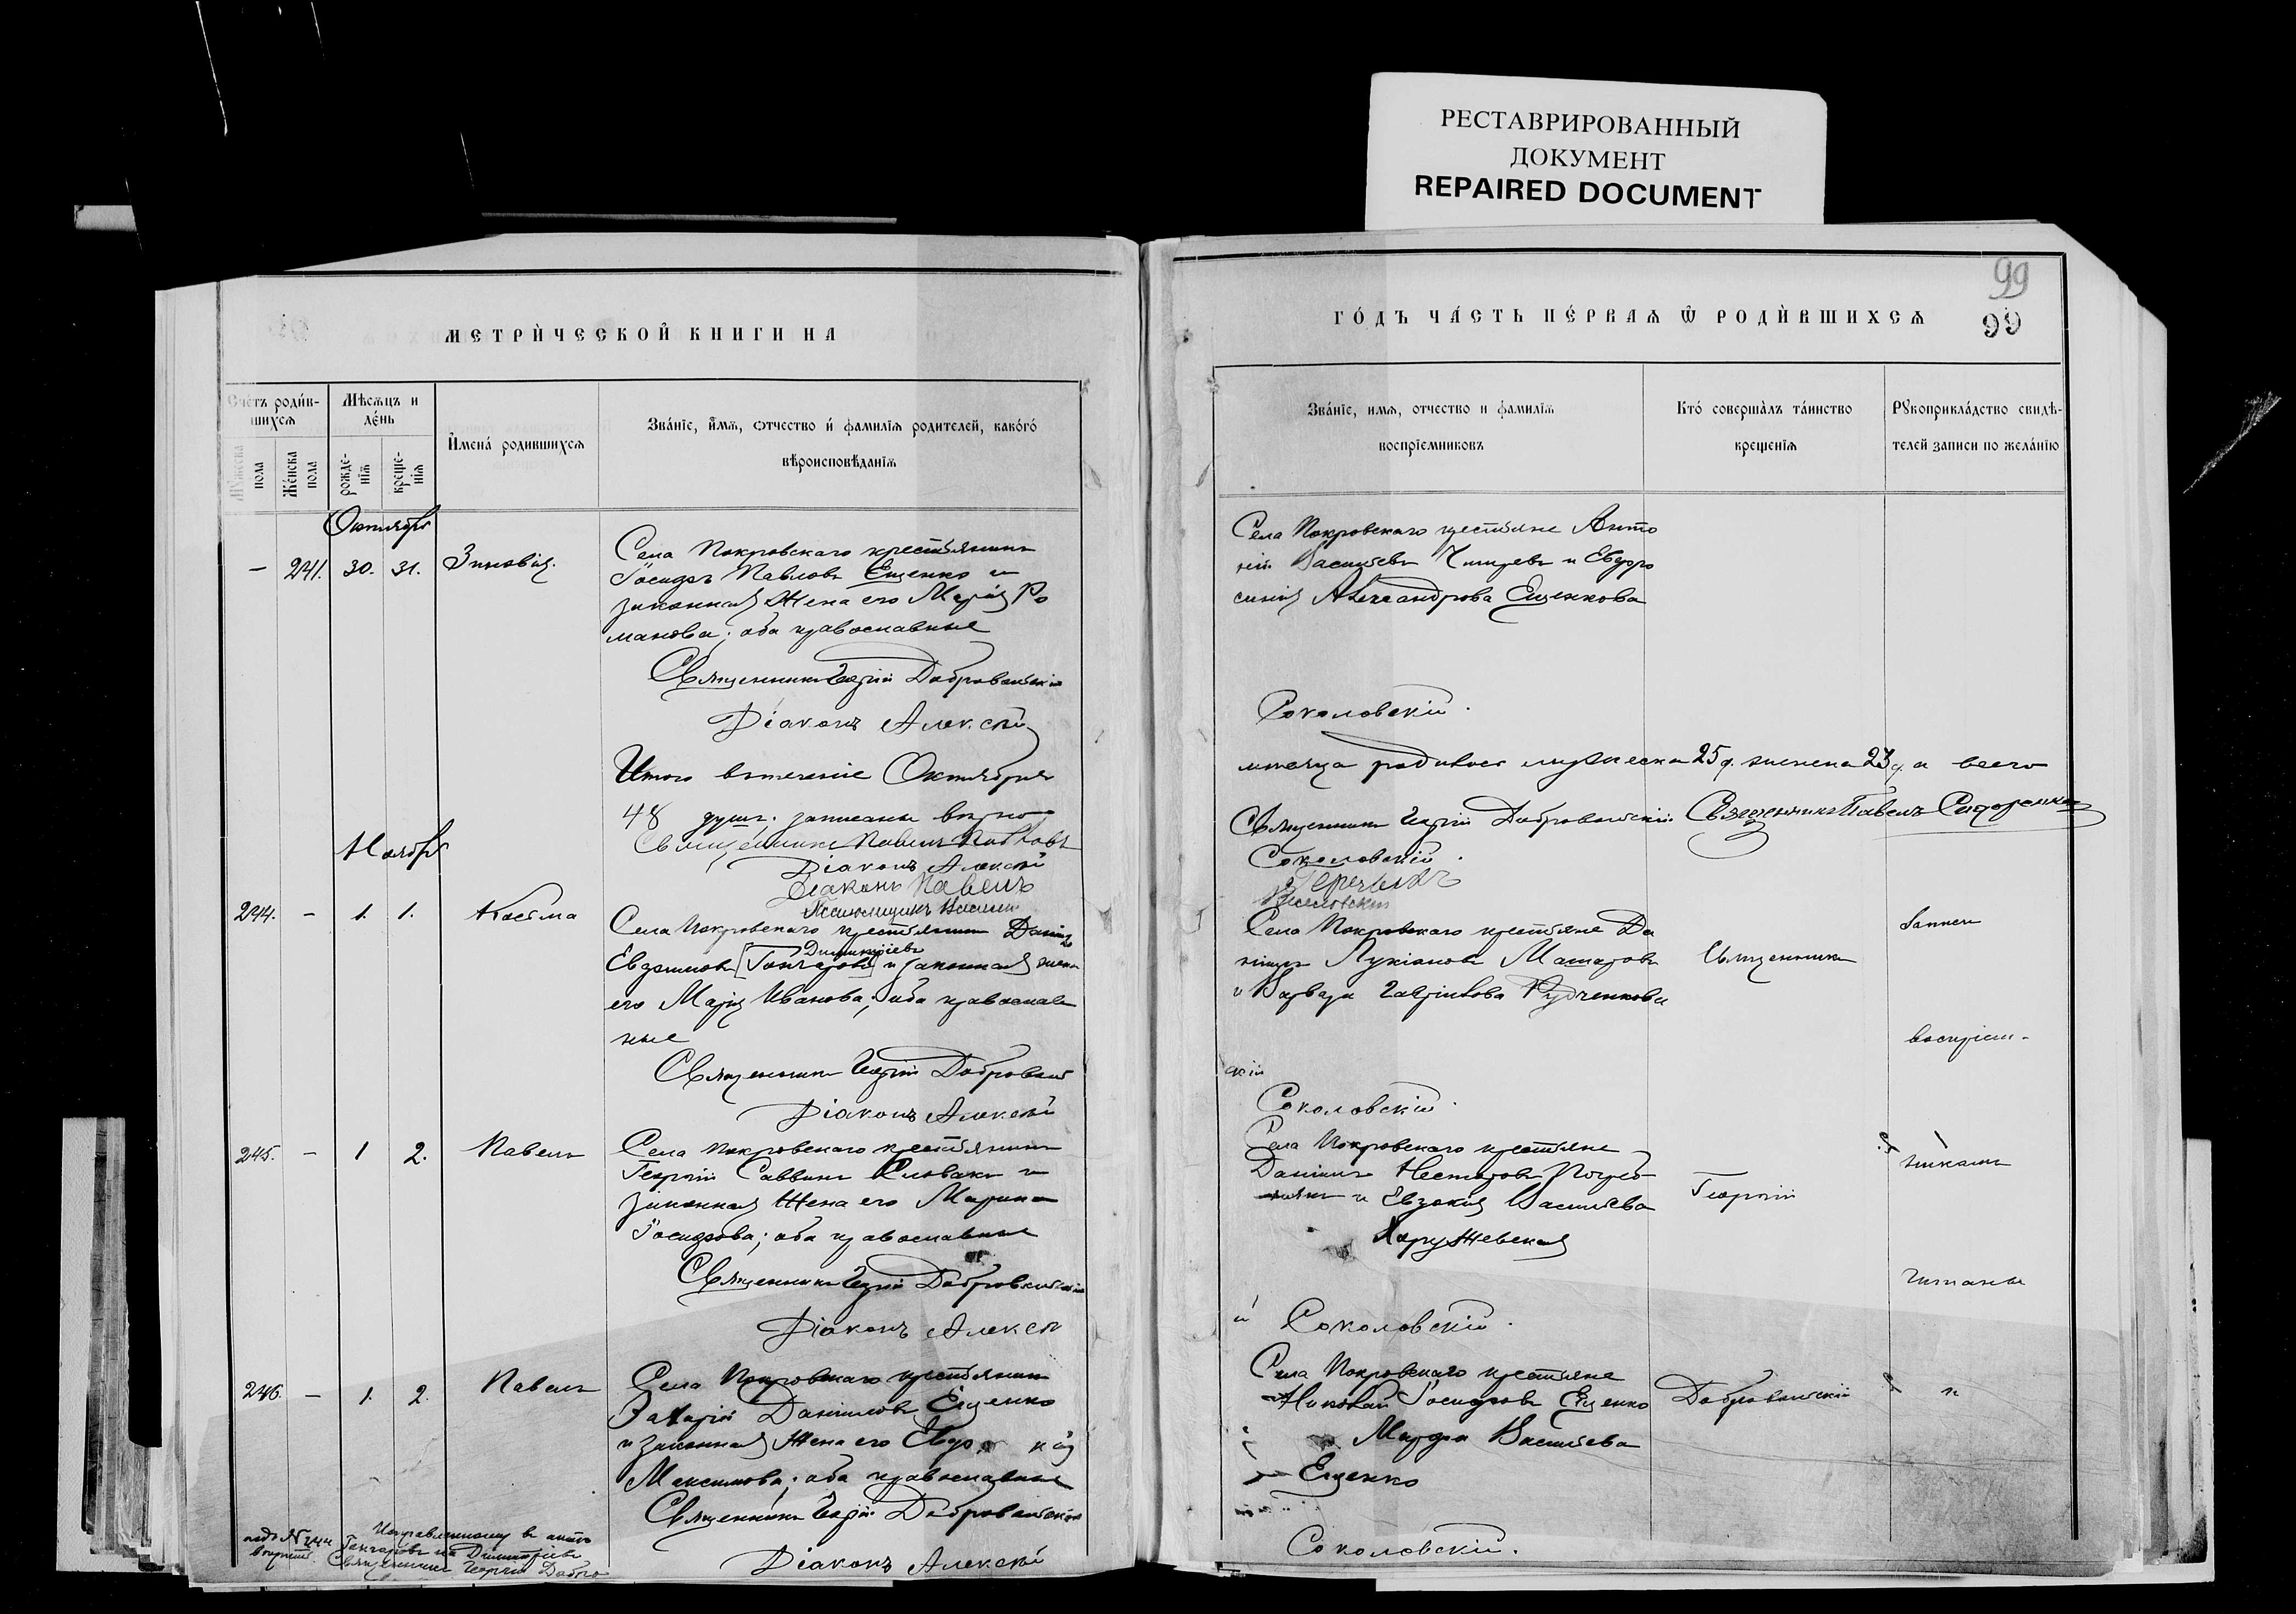 РЕСТАВРИРОВАННЫЙ
ДОКУМЕНТ
REPAIRED DOCUMENT
МЕТРИ́ЧЕСКОЙ КНИГИ НА
Сче́тъ роди́в-
шихсѧ
Мѣсѧцъ и
де́нь
И҆мена́ родившихсѧ
Зва́нїе, и҆́мѧ, ѻтчество и́ фамилїѧ родителей, како́гѡ́
вѣроисповѣ́данїѧ
Мꙋ́жеска
пола
Же́нска
пола
рожде-
нїѧ
креще-
нїѧ
Октябрь
– 241. 30. 31. Зиновія.
Села Покровскаго крестьянинъ
Іосифъ Павловъ Ещенко и
законная жена его Марія Ро
манова; оба православные
Священникъ Георгій Добровольскій
Діаконъ Алексѣй
Итого втеченіе Октября
48 душъ. записаны вѣрно
Священникъ Павелъ
Діаконъ Алексѣй
Діаконъ Павелъ
Псаломщикъ
Ноябрь
244. – 1. 1. Косма
Села Покровскаго крестьянинъ Даніилъ
Димитріевъ
Евдокимовъ [Гончаровъ] и законная жена
его Марія Иванова; оба православ
ные
Священникъ Георгій Доброволь
Діаконъ Алексѣй
245. – 1 2. Павелъ
Села Покровскаго крестьянинъ
Георгій Саввинъ и
законная жена его Марина
Іосифова; оба православные
Священникъ Георгій Добровольскій
Діаконъ Алексѣ
246. – 1. 2. Павелъ
Села Покровскаго крестьянинъ
Захарій Даніиловъ Ещенко
и законная жена его
Максимова; оба православные
Священникъ Георгій Добровольскій
Діаконъ Алексѣй
подъ № 244 Исправленному въ
Гончаровъ на Димитріевъ
Священникъ Георгій Добро
99
ГО́ДЪ ЧА́СТЬ ПЕ́РВАѦ Ѡ҆ РОДИ́ВШИХСѦ
99
Зва́нїе, имѧ, отчество и фамилїѧ
воспрїемниковъ
Кто́ соверша́лъ та́инство
крещенїѧ
Рꙋкоприкла́дство свидѣ-
телей записи по жела́нїю
Села Покровскаго крестьяне Анто
ній Васильевъ и Евфро
синія Александрова Ещенкова
Соколовскій.
мѣсяца родилось мужеска 25 д. женска 23 д. а всего
Священникъ Георгій Добровольскій Священникъ Павелъ Сидоренко
Соколовскій.
Села Покровскаго крестьяне Да
ніилъ Лукіановъ
и Варвара Гавріилова
Священникъ
воспріем-
скій
Соколовскій.
Села Покровскаго крестьяне
Даніилъ Несторовъ
и Евдокія Васильева
Харужевская
Георгій
никамъ
читаны
й Соколовскій.
Села Покровскаго крестьяне
Николай Іосифовъ Ещенко
Марфа Васильева
Ещенко
Добровольскій
Соколовскій.